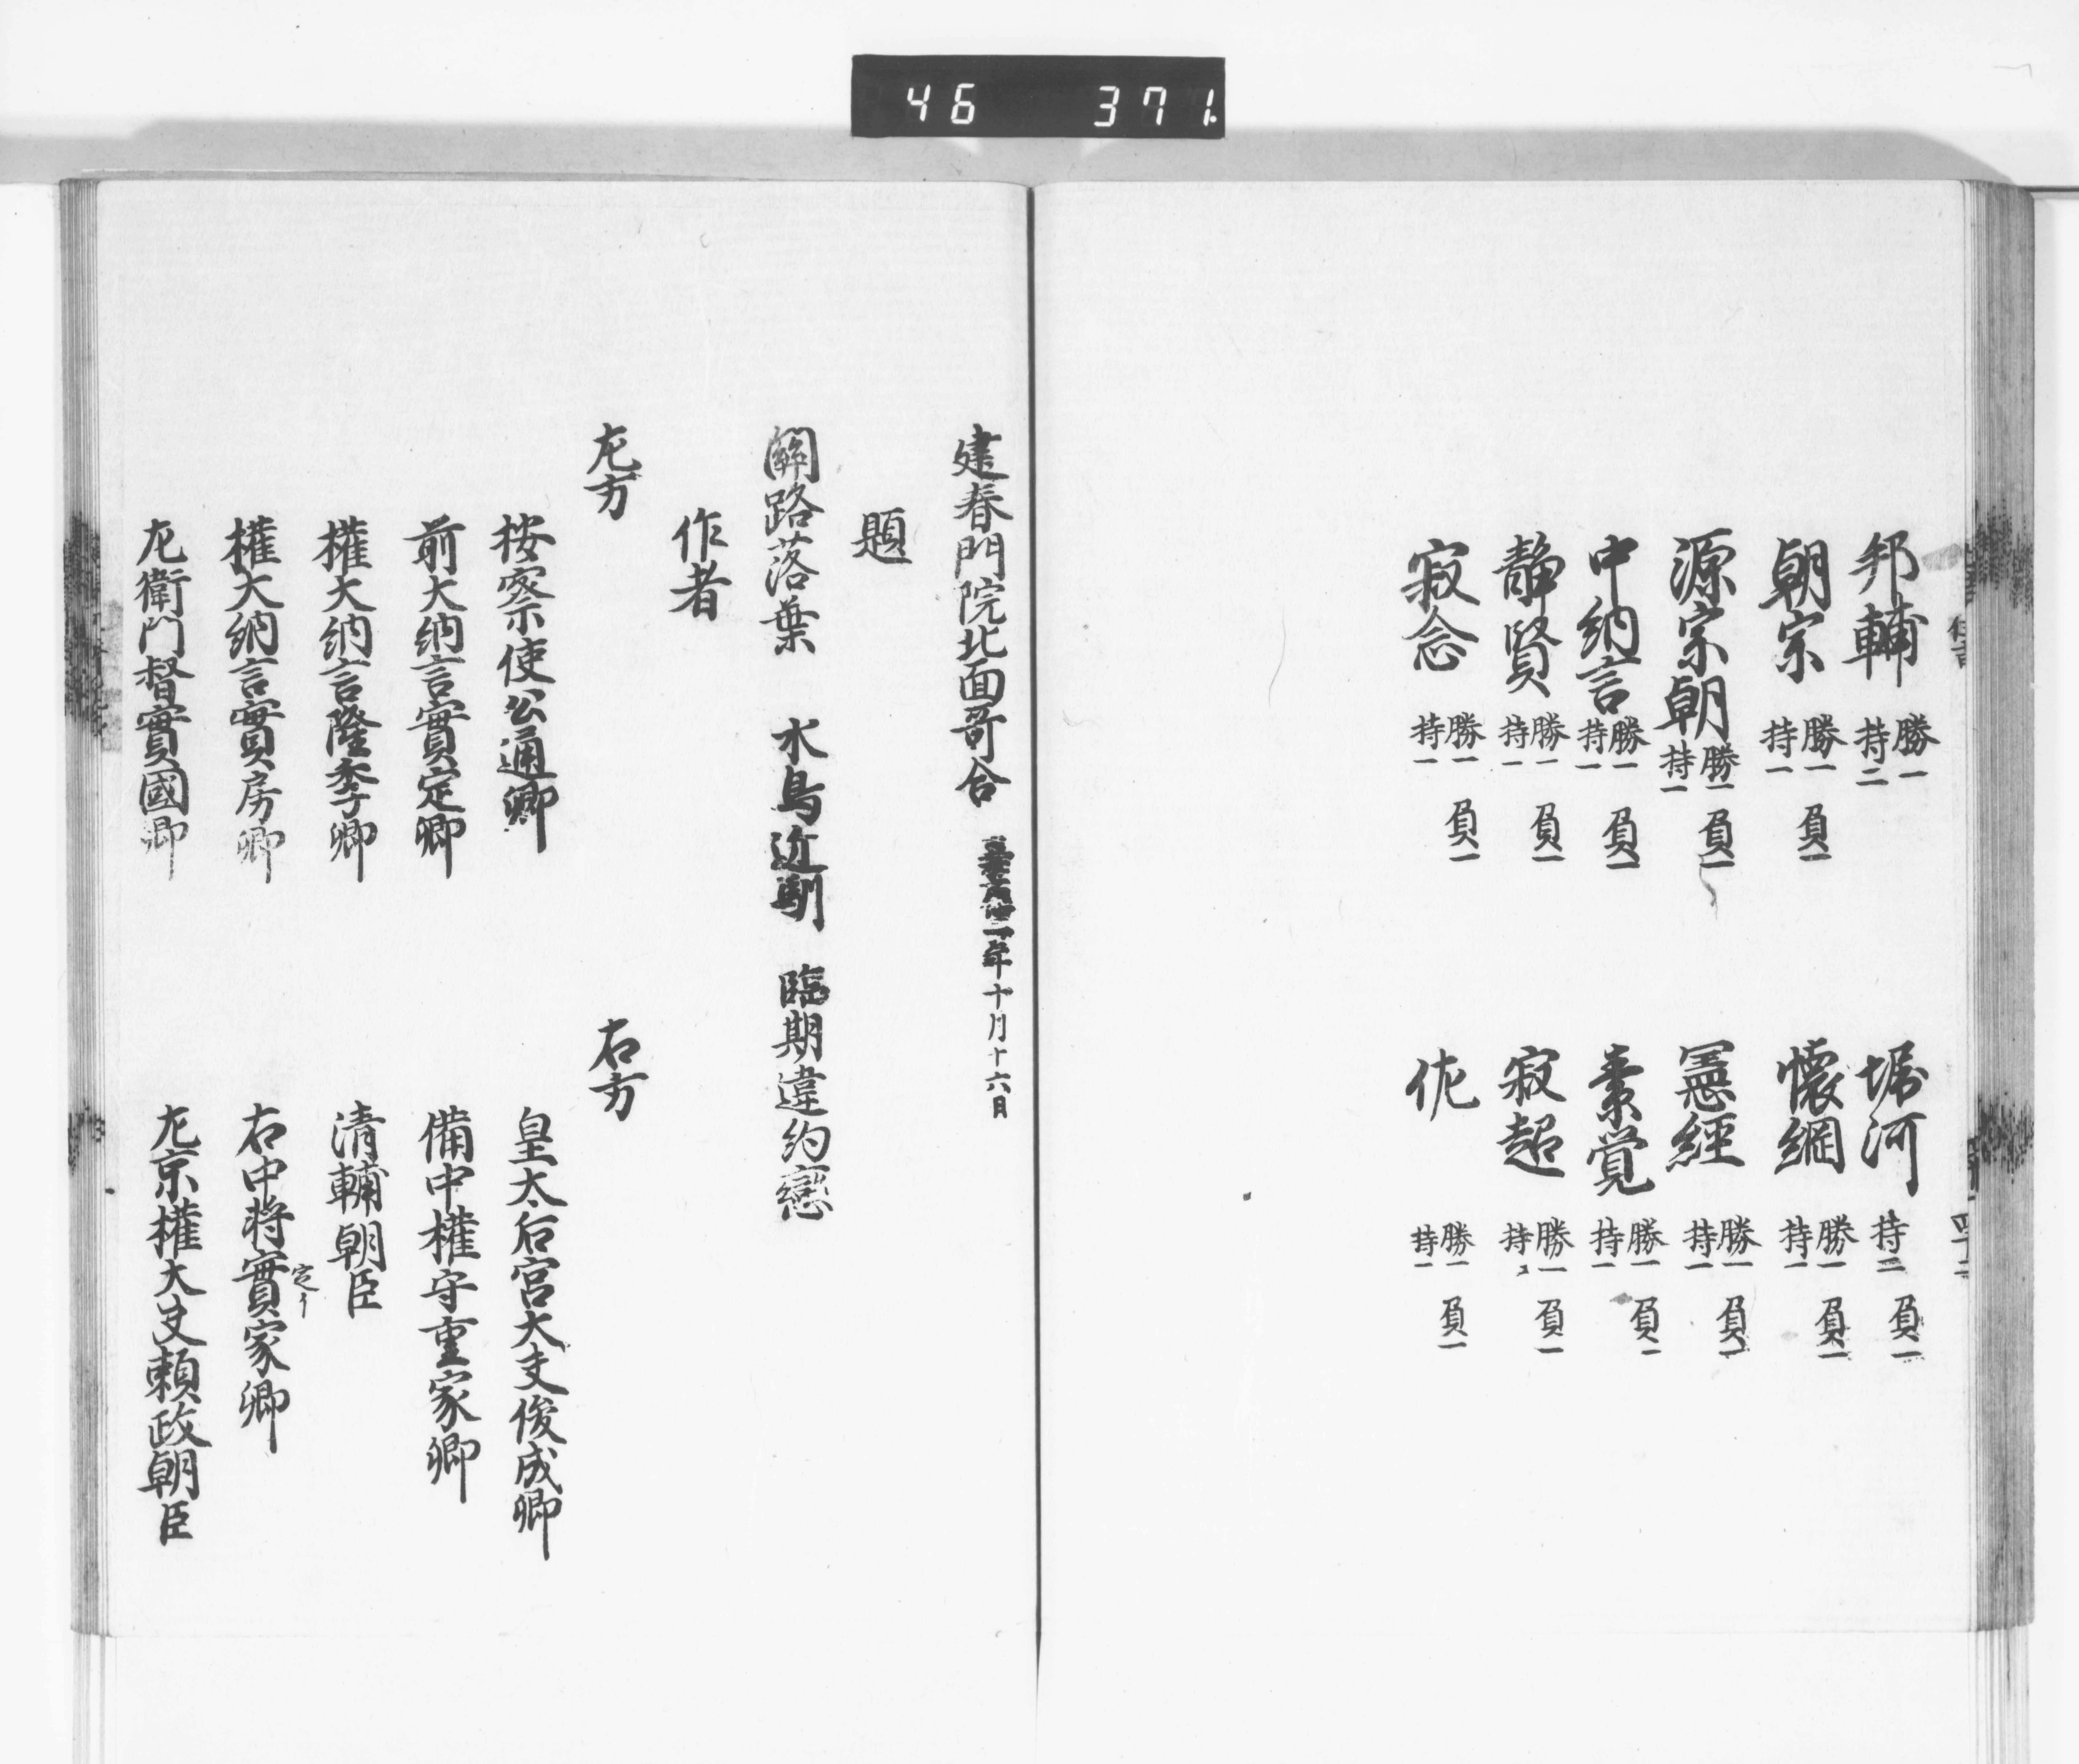 46 371
邦輔 勝一 持二
朝宗 勝一 持一 負一
源宗朝 勝一 持一 負一
中納言 勝一 持一 負一
静賢 勝一 持一 負一
寂念 勝一 持一 負一
堀河 持二 負一
懐綱 勝一 持一 負一
憲經 勝一 持一 負一
素覚 勝一 持一 負一
寂超 勝一 持一 負一
佐 勝一 持一 負一
建春門院北面哥合 二年十月十六日
題
關路落葉 水鳥近馴 臨期違約戀
作者
左方
右方
按察使公通卿
皇太后宮大夫俊成卿
前大納言實定卿
備中權守重家卿
權大納言隆季卿
清輔朝臣
權大納言實房卿
右中將實家卿
左衛門督實國卿
左京權大夫頼政朝臣